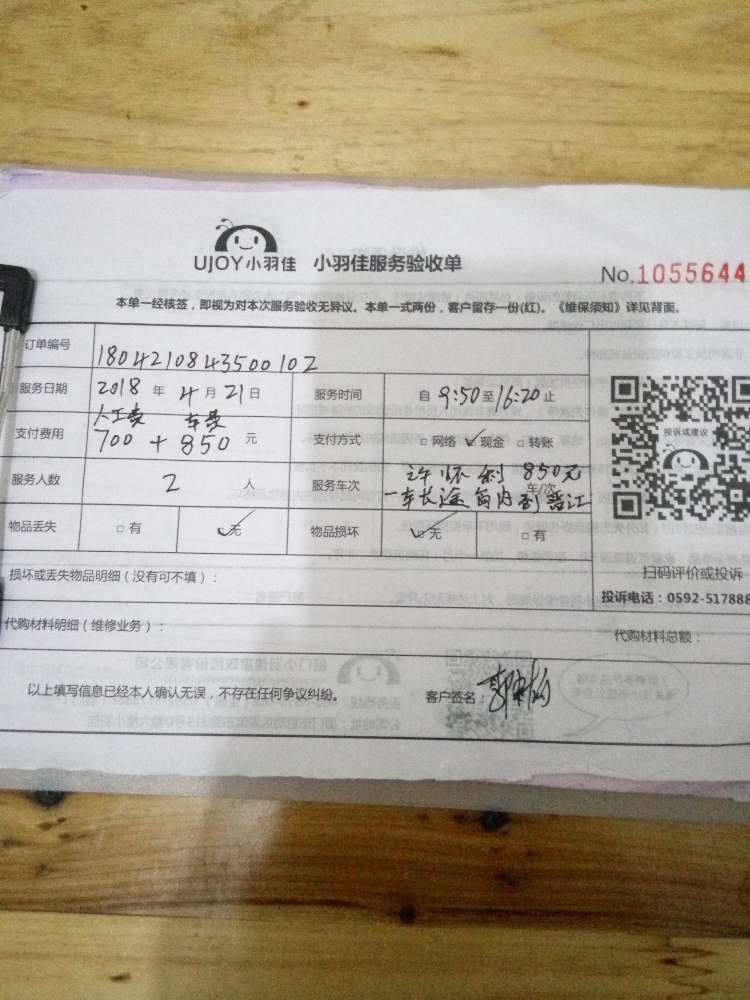 UJOY小羽佳 小羽佳服务验收单
No.1055644
本单一经核签，即视为对本次服务验收无异议。本单一式两份，客户留存一份(红)。《维保须知》详见背面。
订单编号 180421084350010２
服务日期 2018 年 4 月 21 日 服务时间 自 9:50 至 16:20 止
人工费 车费
支付费用 700 + 850 元 支付方式 □网络 ✓现金 □转账
服务人数 2 人 服务车次 许怀钊 850元 车/次
一车长途岛内到晋江
物品丢失 □有 ✓无 物品损坏 ✓无 □有
投诉或建议
扫码评价或投诉
投诉电话：0592-517888
损坏或丢失物品明细（没有可不填）：
代购材料明细（维修业务）： 代购材料总额：
以上填写信息已经本人确认无误，不存在任何争议纠纷。 客户签名：